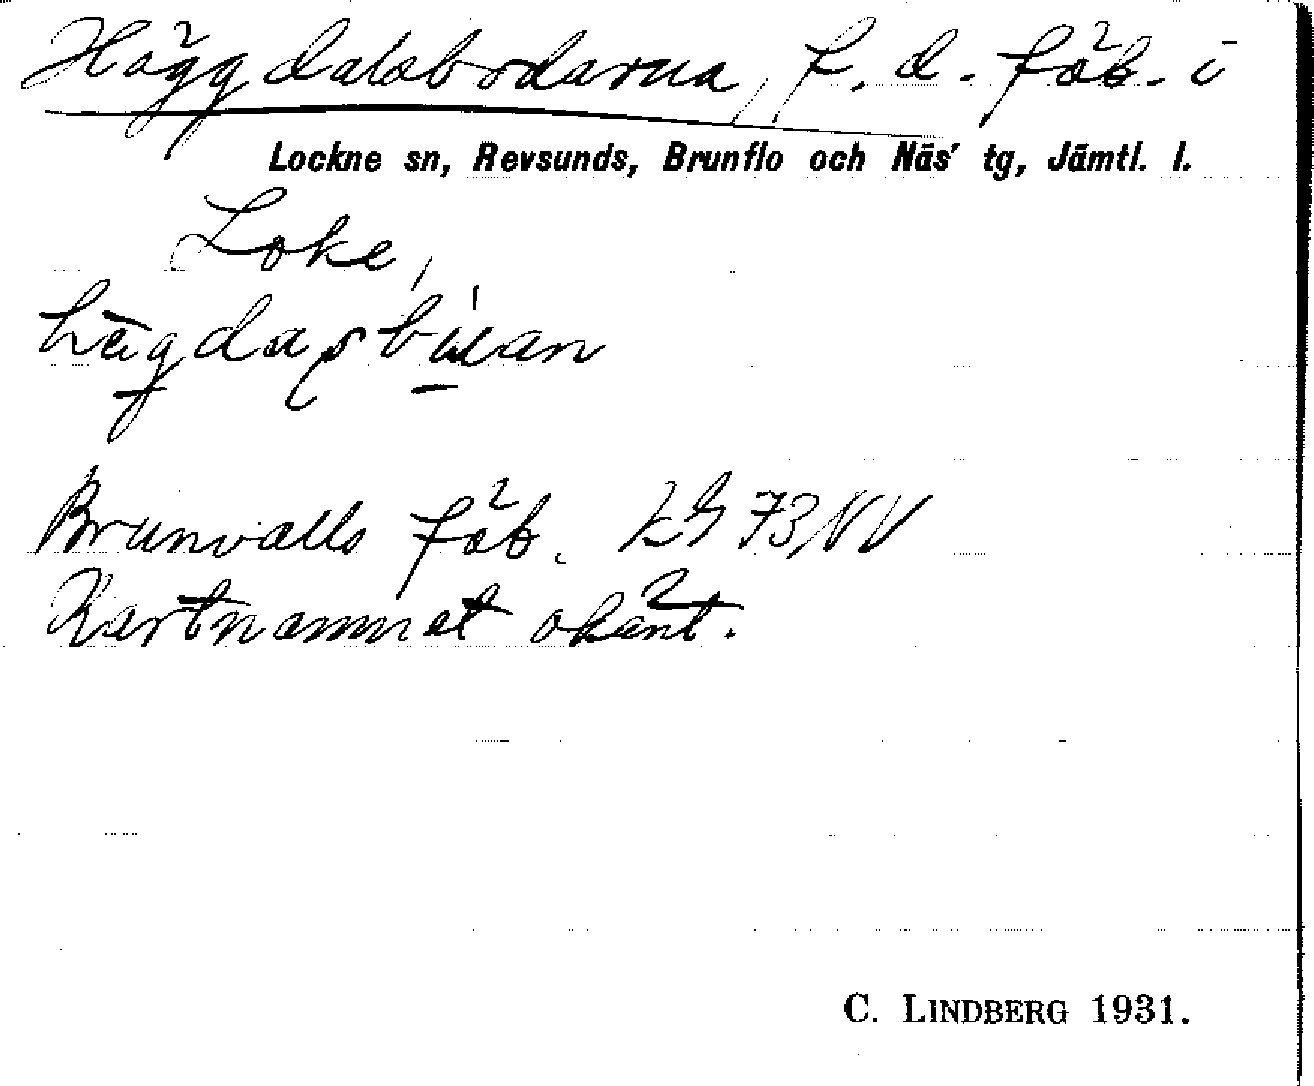 Häggdalsbodarna, f. d. fäb. i
Lockne sn, Revsunds, Brunflo och Näs' tg, Jämtl. l.
Loke,
Brunvalls fäb. KG 73 NV
Kartnamnet okänt.
C. LINDBERG 1931.